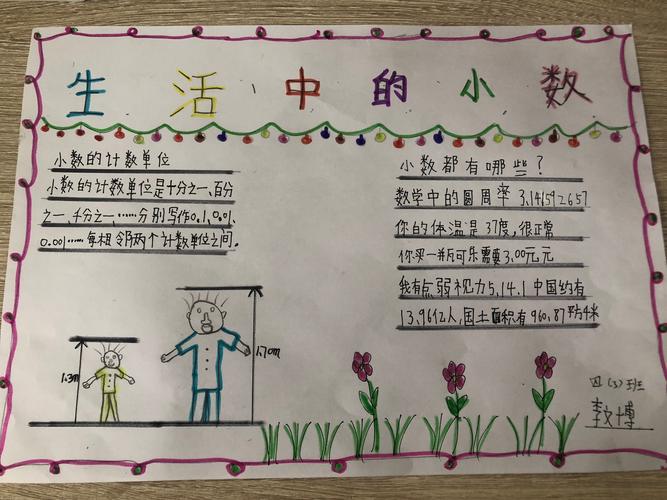 生活中的小数
小数的计数单位
小数的计数单位是十分之一、百分
之一、千分之一……分别写作0.1、0.01、
0.001……每相邻两个计数单位之间.
小数都有哪些？
数学中的圆周率 3.141592657
你的体温是37度,很正常
你买一瓶可乐需要3.00元元
我有点弱视力5.14.1中国约有
13.96亿人,国土面积有960.87平方千米
1.3m
1.70m
四(3)班
李文博